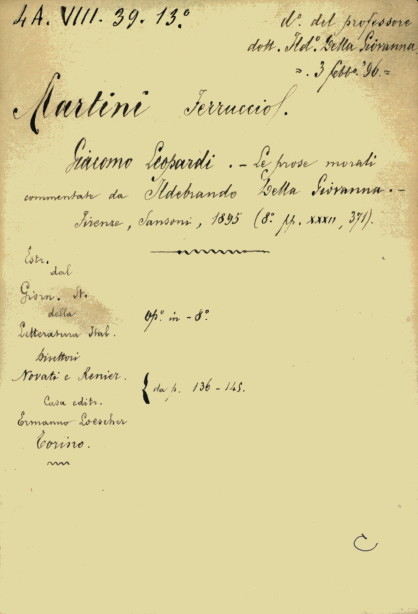 4A. VIII. 39. 13.º
dº. del professore
dott. Ildº. Della Giovanna
=. 3 febbº. '96.=
Martini Ferruccio.
Giacomo Leopardi. - Le prose morali
commentate da Ildebrando Della Giovanna. -
Firenze, Sansoni, 1895 (8º. pp. XXXII, 371).
Estr.
dal
Giorn. St.
della
Letteratura Ital.
Direttori
Novati e Renier.
Casa editr.
Ermanno Loescher
Torino.
opº. in - 8º.
{ da p. 136 - 145.
C